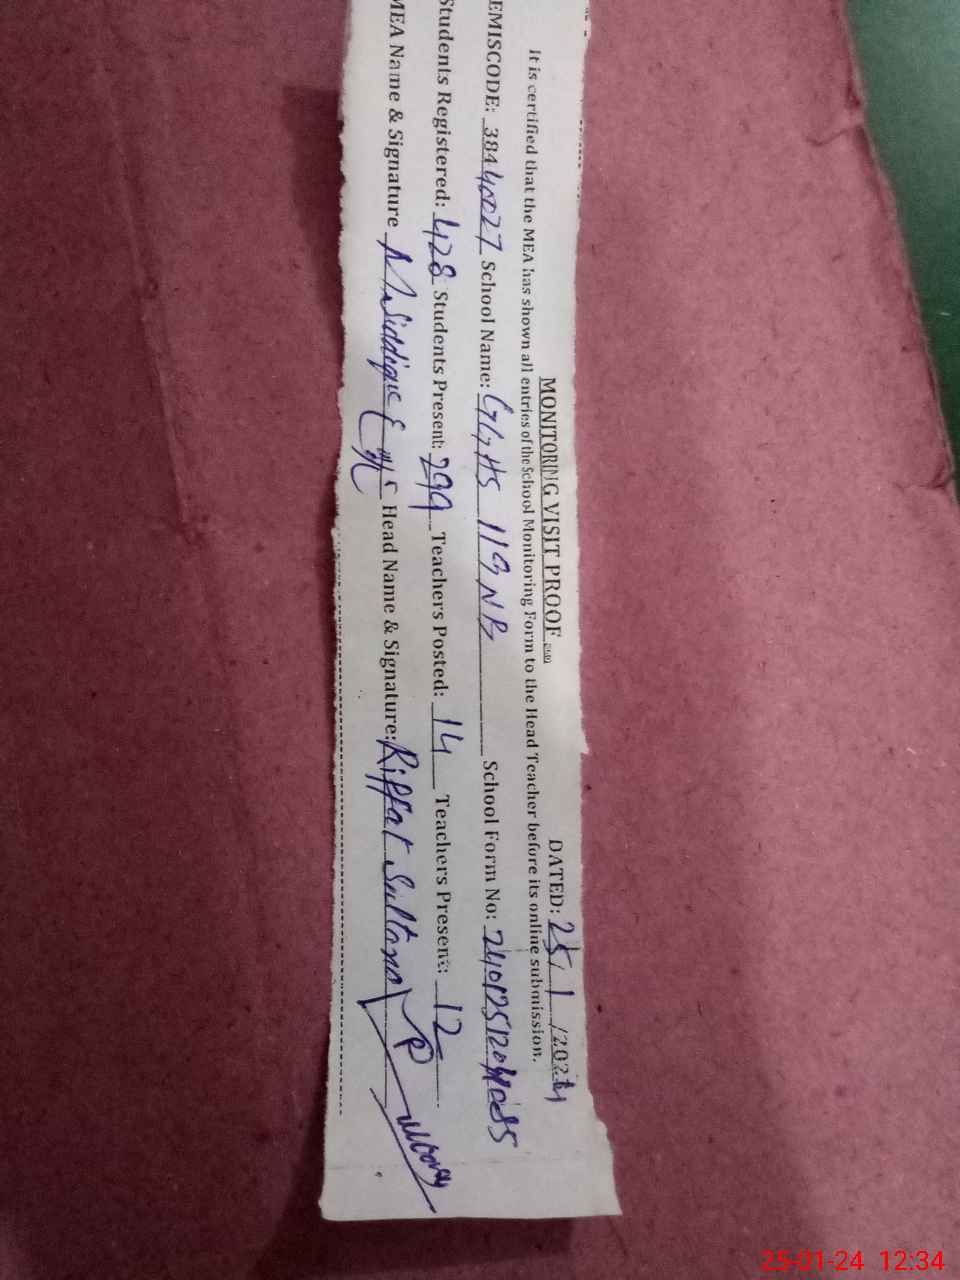 MONITORING VISIT PROOF DATED: 25/1/2024
It is certified that the MEA has shown all entries of the School Monitoring Form to the Head Teacher before its online submission.
EMISCODE: 38440027 School Name: GGHS 119 NB School Form No:
Students Registered: 428 Students Present: 299 Teachers Posted: 14 Teachers Present: 12
MEA Name & Signature M. Siddique Head Name & Signature: Riffat Sultana
25-01-24 12:34